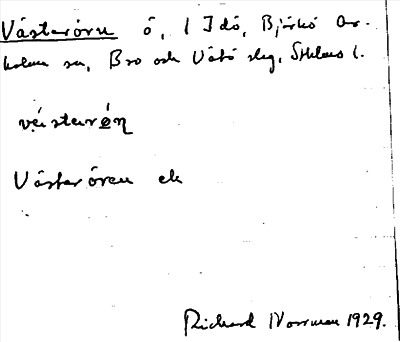 Västerören ö, i Idö, Björkö Ar-
holma sn, Bro och Vätö slg, Sthlms l.
västərö̀n
Västerören ek
Richard Norrman 1929.